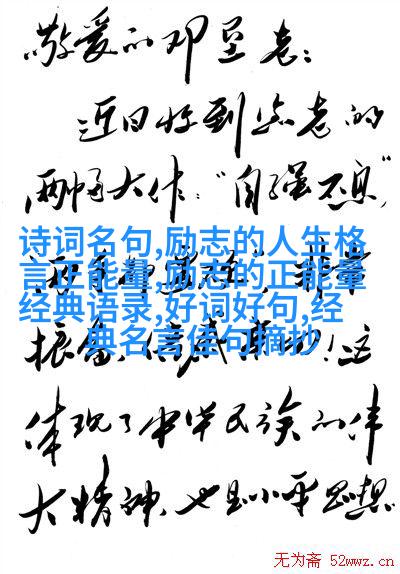 敬爱的邓垦老：
近日收到您老的
两幅大作："自强不息"，
诗词名句,励志的人生格
言正能量,励志的正能量
非常
经典语录,好词好句,经
典名言佳句摘抄
振奋、倍感！这
体现了中华民族的伟
大精神,也是小平思想
无为斋 52wwz.cn